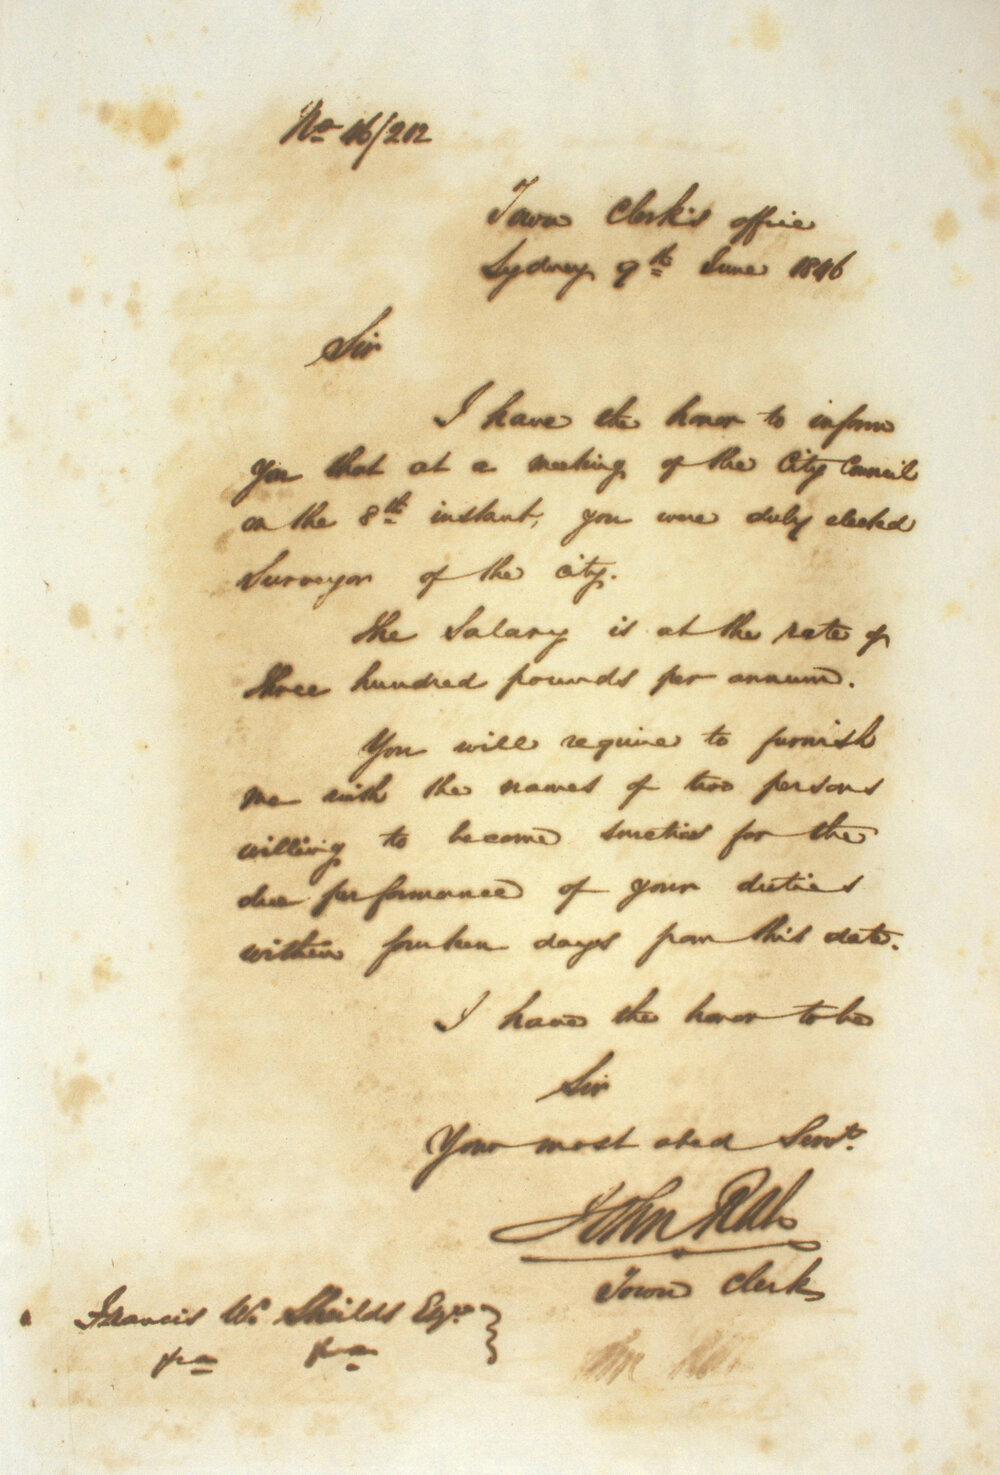 No 46/212
Town Clerk's office
Sydney 9th June 1846
Sir
I have the honor to inform
you that at a meeting of the City Council
on the 8th instant, you were duly elected
Surveyor of the city.
The Salary is at the rate of
three hundred pounds per annum.
You will require to furnish
me with the names of two persons
willing to become sureties for the
due performance of your duties
within fourteen days from this date.
I have the honor to be
Sir
Your most obed Servt.
John
Town Clerk
Francis W. Sheilds Esqre